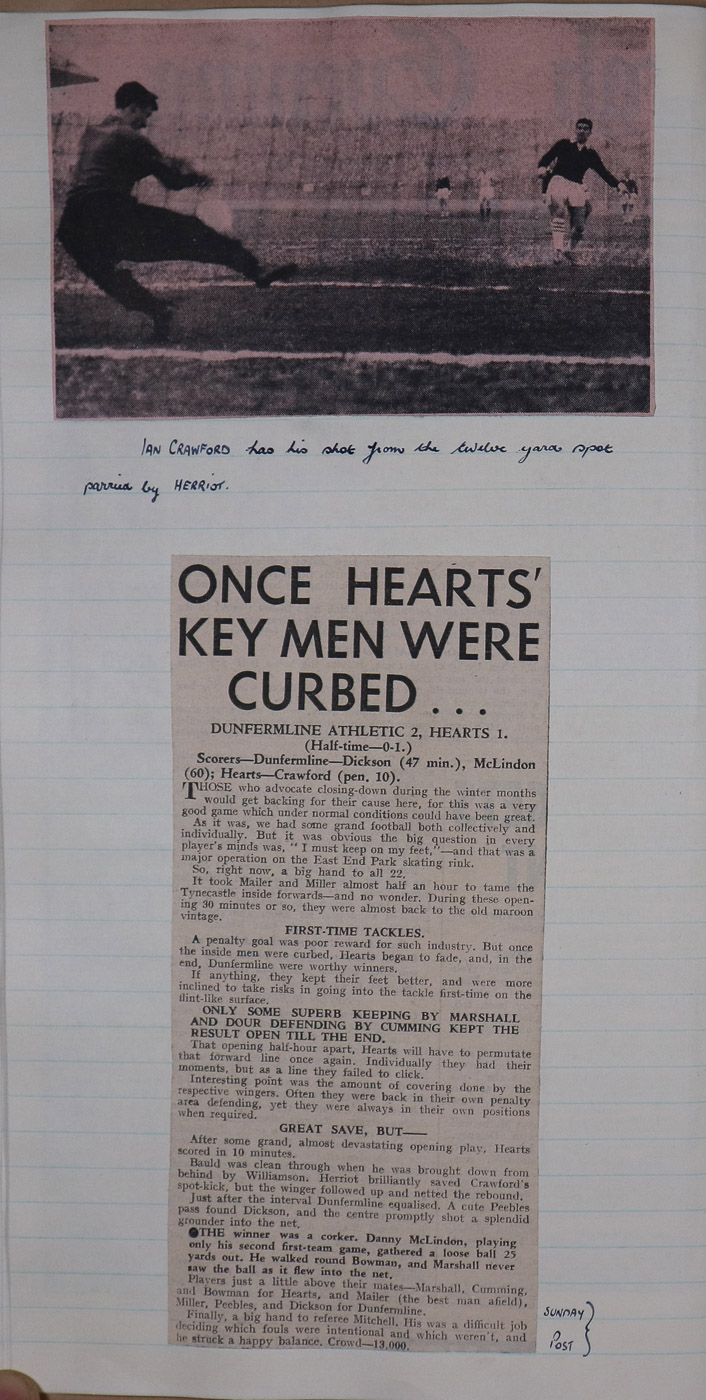 IAN CRAWFORD has his shot from the twelve yard spot
parried by HERRIOT.
ONCE HEARTS'
KEY MEN WERE
CURBED . . .
DUNFERMLINE ATHLETIC 2, HEARTS 1.
(Half-time—0-1.)
Scorers—Dunfermline—Dickson (47 min.), McLindon
(60); Hearts—Crawford (pen. 10).
THOSE who advocate closing-down during the winter months
would get backing for their cause here, for this was a very
good game which under normal conditions could have been great.
As it was, we had some grand football both collectively and
individually. But it was obvious the big question in every
player's minds was, " I must keep on my feet,"—and that was a
major operation on the East End Park skating rink.
So, right now, a big hand to all 22.
It took Mailer and Miller almost half an hour to tame the
Tynecastle inside forwards—and no wonder. During these open-
ing 30 minutes or so, they were almost back to the old maroon
vintage.
FIRST-TIME TACKLES.
A penalty goal was poor reward for such industry. But once
the inside men were curbed, Hearts began to fade, and, in the
end, Dunfermline were worthy winners.
If anything, they kept their feet better, and were more
inclined to take risks in going into the tackle first-time on the
flint-like surface.
ONLY SOME SUPERB KEEPING BY MARSHALL
AND DOUR DEFENDING BY CUMMING KEPT THE
RESULT OPEN TILL THE END.
That opening half-hour apart, Hearts will have to permutate
that forward line once again. Individually they had their
moments, but as a line they failed to click.
Interesting point was the amount of covering done by the
respective wingers. Often they were back in their own penalty
area defending, yet they were always in their own positions
when required.
GREAT SAVE, BUT——
After some grand, almost devastating opening play, Hearts
scored in 10 minutes.
Bauld was clean through when he was brought down from
behind by Williamson. Herriot brilliantly saved Crawford's
spot-kick, but the winger followed up and netted the rebound.
Just after the interval Dunfermline equalised. A cute Peebles
pass found Dickson, and the centre promptly shot a splendid
grounder into the net.
●THE winner was a corker. Danny McLindon, playing
only his second first-team game, gathered a loose ball 25
yards out. He walked round Bowman, and Marshall never
saw the ball as it flew into the net.
Players just a little above their mates—Marshall, Cumming,
and Bowman for Hearts, and Mailer (the best man afield),
Miller, Peebles, and Dickson for Dunfermline.
Finally, a big hand to referee Mitchell. His was a difficult job
deciding which fouls were intentional and which weren't, and
he struck a happy balance. Crowd—13,000.
SUNDAY
POST